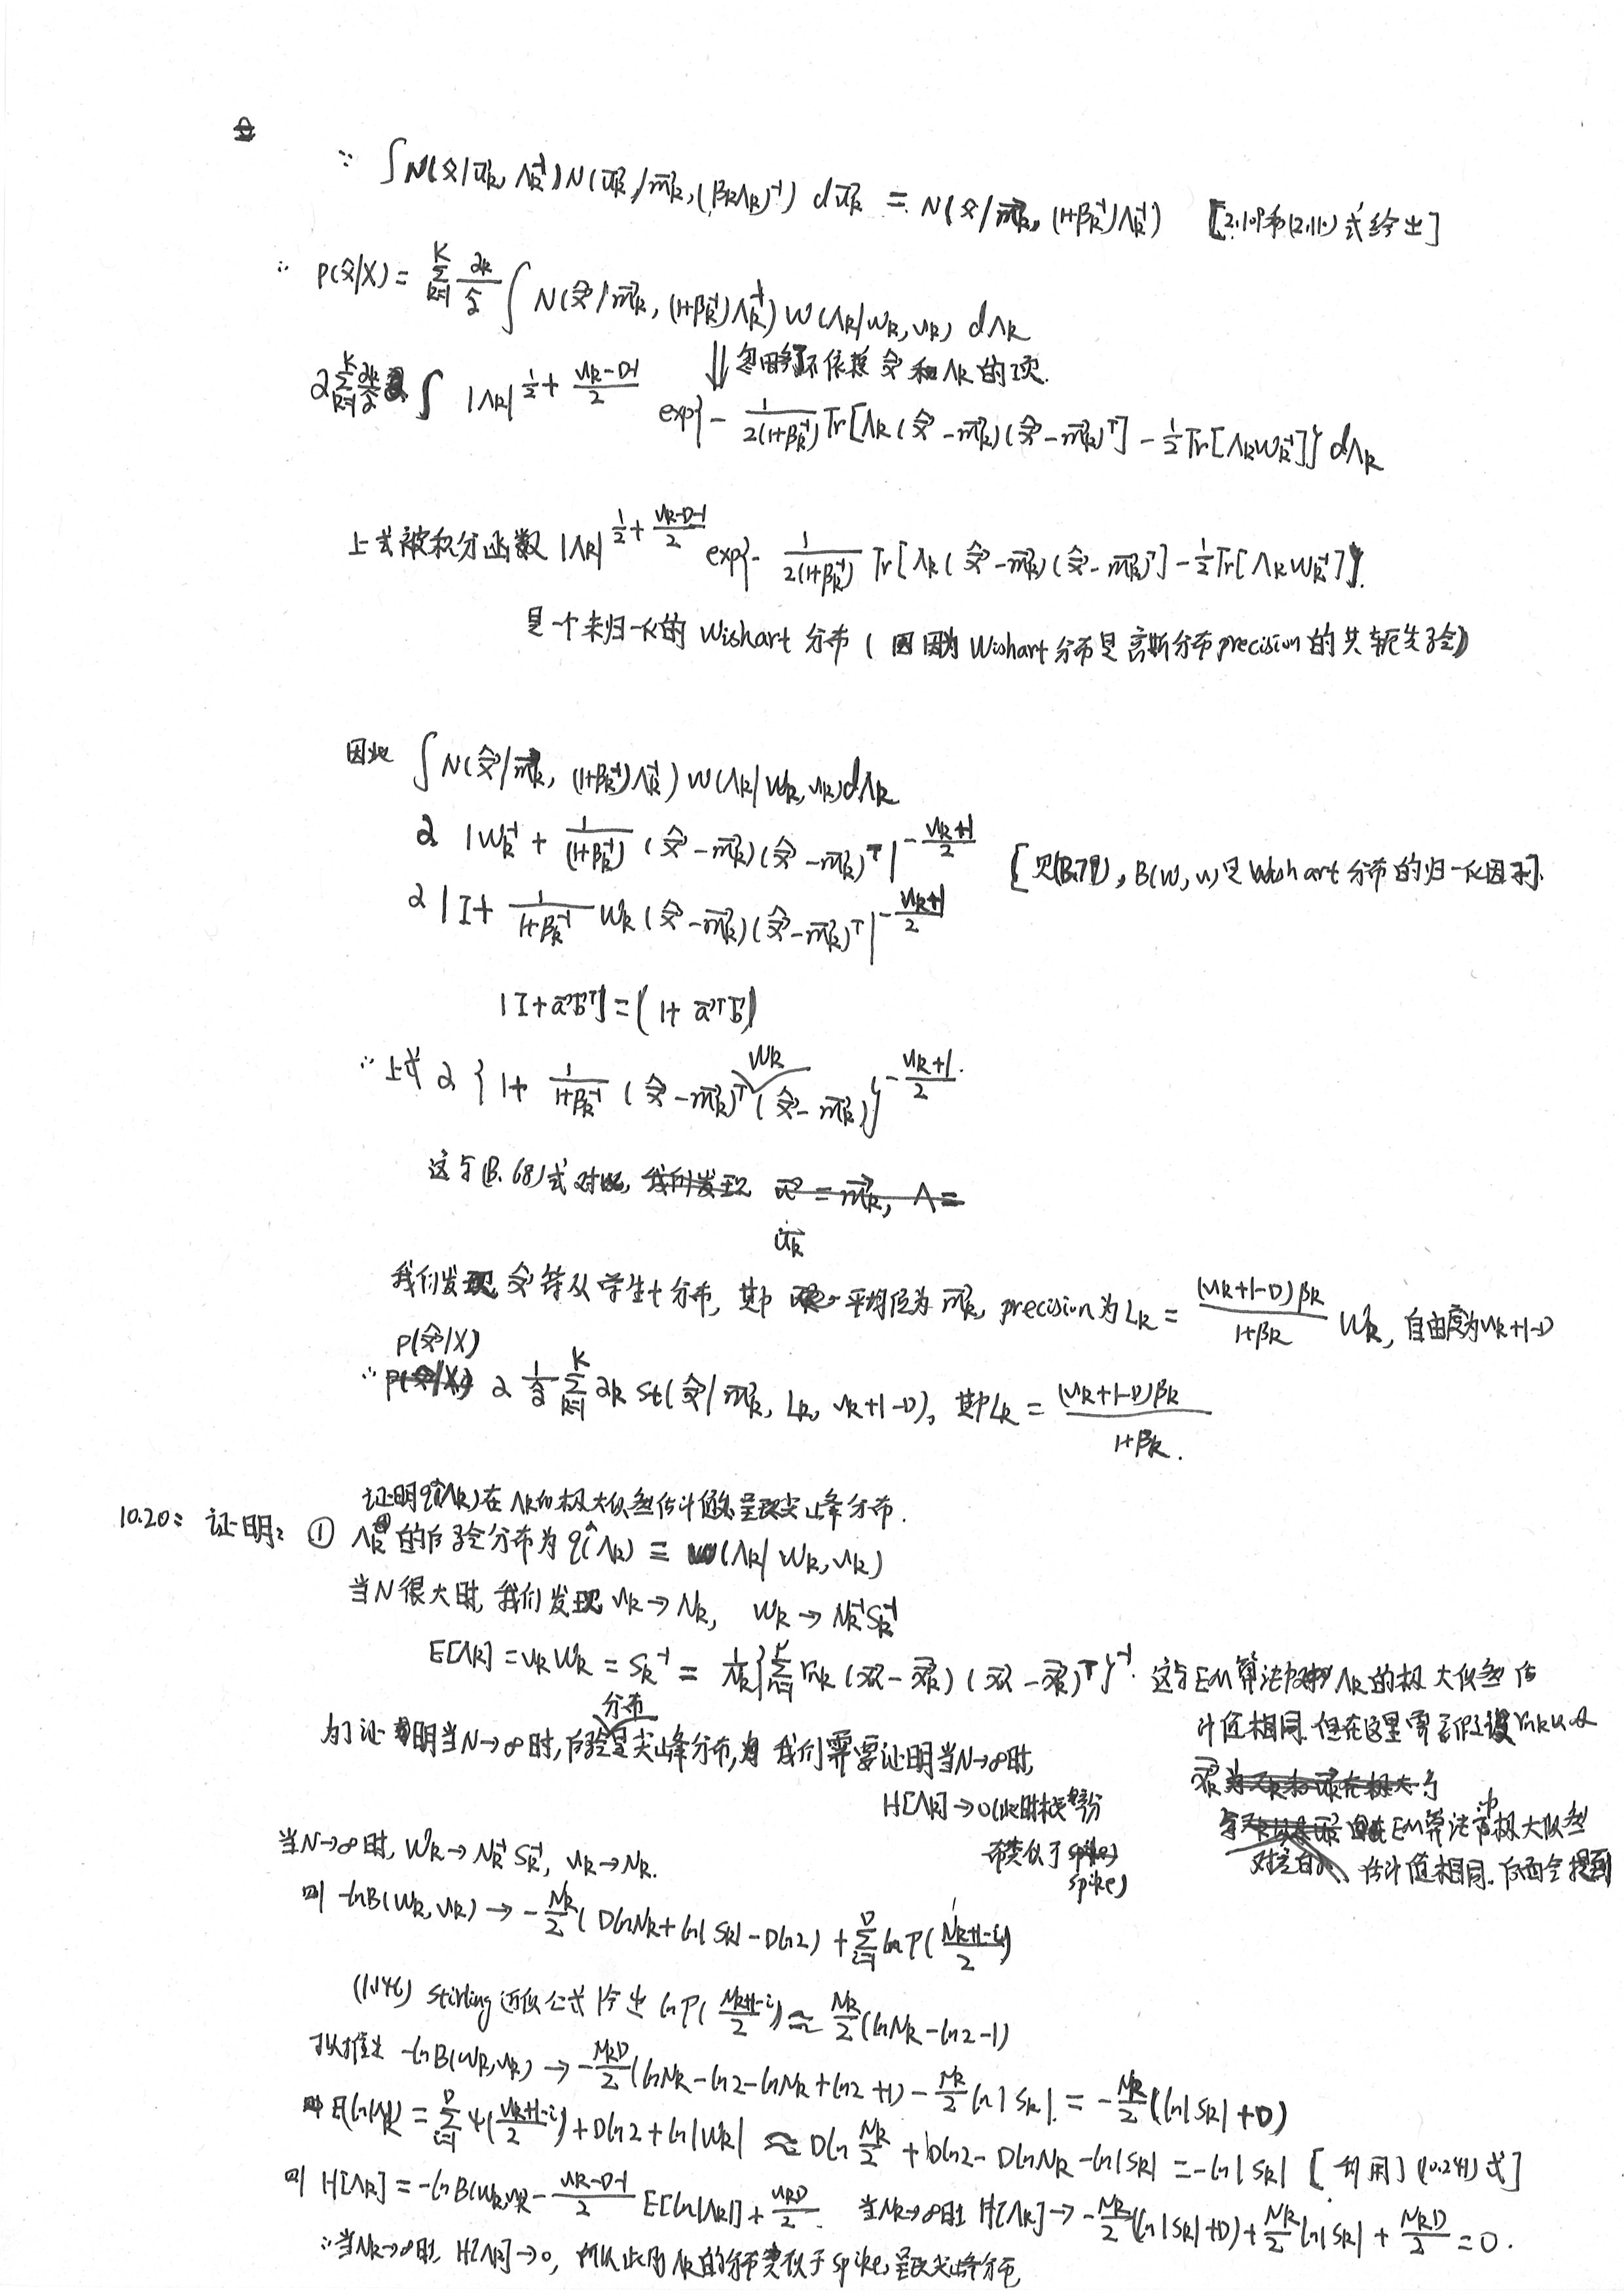 ∵ ∫N(x̂/u⃗k, Λk⁻¹)N(u⃗k/m⃗k,(βkΛk)⁻¹) du⃗k = N(x̂/m⃗k, (1+βk⁻¹)Λk⁻¹) [2.109和(2.110)式给出]
∴ P(x̂/X) = Σ_{k=1}^{K} αk/α̂ ∫ N(x̂/m⃗k, (1+βk⁻¹)Λk⁻¹) W(Λk/Wk,νk) dΛk
⇓ 忽略不依赖 x̂ 和 Λk 的项.
∝ Σ_{k=1}^{K} αk/α̂ ∫ |Λk|^{1/2 + (νk-D-1)/2} exp{- 1/(2(1+βk⁻¹)) Tr[Λk(x̂-m⃗k)(x̂-m⃗k)ᵀ] - ½Tr[ΛkWk⁻¹]} dΛk
上式被积分函数 |Λk|^{1/2 + (νk-D-1)/2} exp{- 1/(2(1+βk⁻¹)) Tr[Λk(x̂-m⃗k)(x̂-m⃗k)ᵀ] - ½Tr[ΛkWk⁻¹]}.
是一个未归一化的 Wishart 分布 ( 因为 Wishart 分布是高斯分布 precision 的共轭先验)
因此 ∫ N(x̂/m⃗k, (1+βk⁻¹)Λk⁻¹) W(Λk/Wk,νk)dΛk
∝ |Wk⁻¹ + 1/(1+βk⁻¹) (x̂-m⃗k)(x̂-m⃗k)ᵀ|^{-(νk+1)/2} [见(B.79), B(W,ν)是 Wishart 分布的归一化因子].
∝ |I + 1/(1+βk⁻¹) Wk(x̂-m⃗k)(x̂-m⃗k)ᵀ|^{-(νk+1)/2}
|I+a⃗b⃗ᵀ| = (1+a⃗ᵀb⃗)
∴ 上式 ∝ {1 + 1/(1+βk⁻¹) (x̂-m⃗k)ᵀ Wk (x̂-m⃗k)}^{-(νk+1)/2}.
这与(B.68)式对比,
u⃗k
我们发现 x̂ 符从学生t分布, 其中平均值为 m⃗k, precision为 Lk = (νk+1-D)βk/(1+βk) Wk, 自由度为νk+1-D
P(x̂/X)
∴ ∝ 1/α̂ Σ_{k=1}^{K} αk St(x̂/m⃗k, Lk, νk+1-D), 其中Lk = (νk+1-D)βk/(1+βk).
证明q*(Λk)在Λk的极大似然估计值处呈现尖峰分布.
10.20: 证明: ① Λk的后验分布为 q*(Λk) = W(Λk/Wk,νk)
当N很大时, 我们发现 νk→Nk, Wk→Nk⁻¹Sk⁻¹
E[Λk] = νkWk = Sk⁻¹ = 1/Nk{Σ rnk(x⃗n-x⃗k)(x⃗n-x⃗k)ᵀ}⁻¹. 这与EM算法中Λk的极大似然估
计值相同. 但在这里需要假设rnk以及
x⃗k
EM算法中极大似然
估计值相同. 后面会提到
为了证明当N→∞时, 后验分布是尖峰分布, 我们需要证明当N→∞时,
H[Λk]→0(此时概率分
布类似于
spike)
当N→∞时, Wk→Nk⁻¹Sk⁻¹, νk→Nk.
则 -lnB(Wk,νk) → -Nk/2(DlnNk+ln|Sk|-Dln2) + Σ_{i=1}^{D} lnΓ((Nk+1-i)/2)
(1.146) Stirling近似公式给出 lnΓ((Nk+1-i)/2) ≈ Nk/2(lnNk-ln2-1)
可以推出 -lnB(Wk,νk) → -NkD/2(lnNk-ln2-lnNk+ln2+1) - Nk/2 ln|Sk| = -Nk/2(ln|Sk|+D)
E[ln|Λk|] = Σ_{i=1}^{D} ψ((νk+1-i)/2)+Dln2+ln|Wk| ≈ Dln Nk/2 + Dln2-DlnNk-ln|Sk| = -ln|Sk| [利用了(10.241)式]
则 H[Λk] = -lnB(Wk,νk) - (νk-D-1)/2 E[ln|Λk|] + νkD/2. 当Nk→∞时 H[Λk]→ -Nk/2(ln|Sk|+D)+Nk/2 ln|Sk| + NkD/2 = 0.
∴当Nk→∞时, H[Λk]→0, 所以此时Λk的分布类似于spike, 呈现尖峰分布